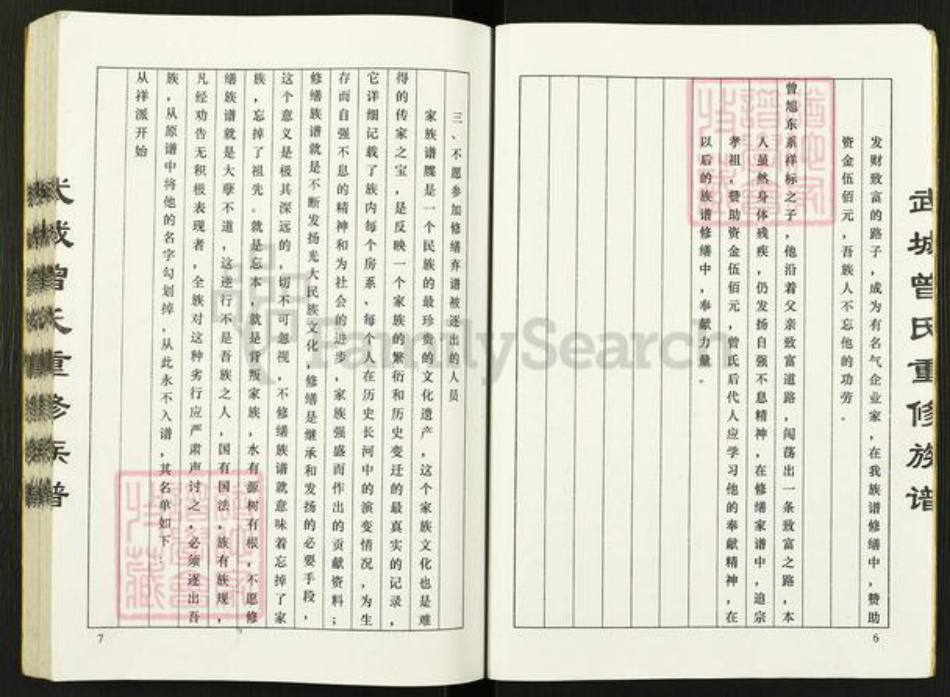 武城曾氏重修族谱
发财致富的路子，成为有名气企业家，在我族谱修缮中，赞助
资金伍佰元，吾族人不忘他的功劳。
曾旭东系祥标之子，他沿着父亲致富道路，闯荡出一条致富之路，本
人虽然身体残疾，仍发扬自强不息精神，在修缮家谱中，追宗
孝祖，赞助资金伍佰元，曾氏后代人应学习他的奉献精神，在
以后的族谱修缮中，奉献力量。
6
三、不愿参加修缮弃谱被逐出的人员
家族谱牒是一个民族的最珍贵的文化遗产，这个家族文化也是难
得的传家之宝，是反映一个家族的繁衍和历史变迁的最真实的记录，
它详细记载了族内每个房系、每个人在历史长河中的演变情况，为生
存而自强不息的精神和为社会的进步，家族强盛而作出的贡献资料；
修缮族谱就是不断发扬光大民族文化，修缮是继承和发扬的必要手段，
这个意义是极其深远的，切不可忽视，不修缮族谱就意味着忘掉了家
族，忘掉了祖先。就是忘本，就是背叛家族，水有源树有根，不愿修
缮族谱就是大孽不道，这逆行不是吾族之人，国有国法，族有族规，
凡经劝告无积极表现者，全族对这种劣行应严肃声讨之，必须逐出吾
族，从原谱中将他的名字勾划掉，从此永不入谱，其名单如下：
从祥派开始
7
武城曾氏重修族谱
FamilySearch